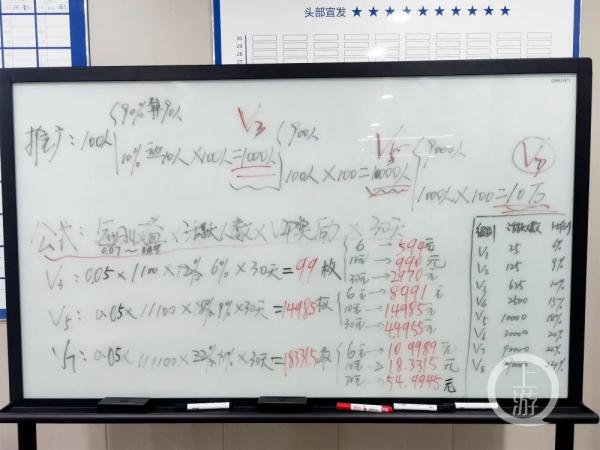 头部宣发 ★★★★★★★★★★
90%
推广：100人
10% 10人×100人=1000人
V3
900人
100人×100=10000人
V5
9000人
1000人×100=10万
V7
公式： ×活跃人数× ×30天
0.07～0.04
V3：0.05×1100× 6%×30天=99枚
6元→594元
10元→990元
30元→2970元
V5：0.05×11100× 9%×30天=1498.5枚
6元→8991元
10元→14985元
30元→44955元
V7：0.05×111100×22% ×30天=18331.5枚
6元→10.9989元
10元→18.3315元
30元→54.9945元
级别 活跃人数
V1 25 6%
V2 125 9%
V3 625 12%
V4 2500 15%
V5 10000 18%
V6 30000 20%
V7 90000 22%
V8 24%
上游